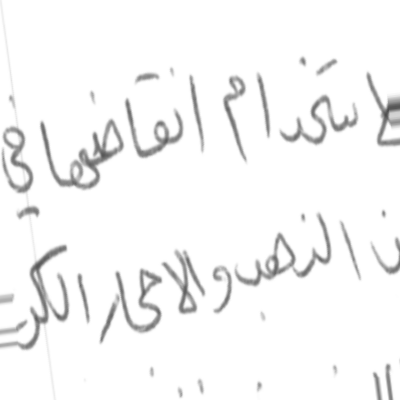 لاستخدام انقاضها في
الذهب والاحجار الكر